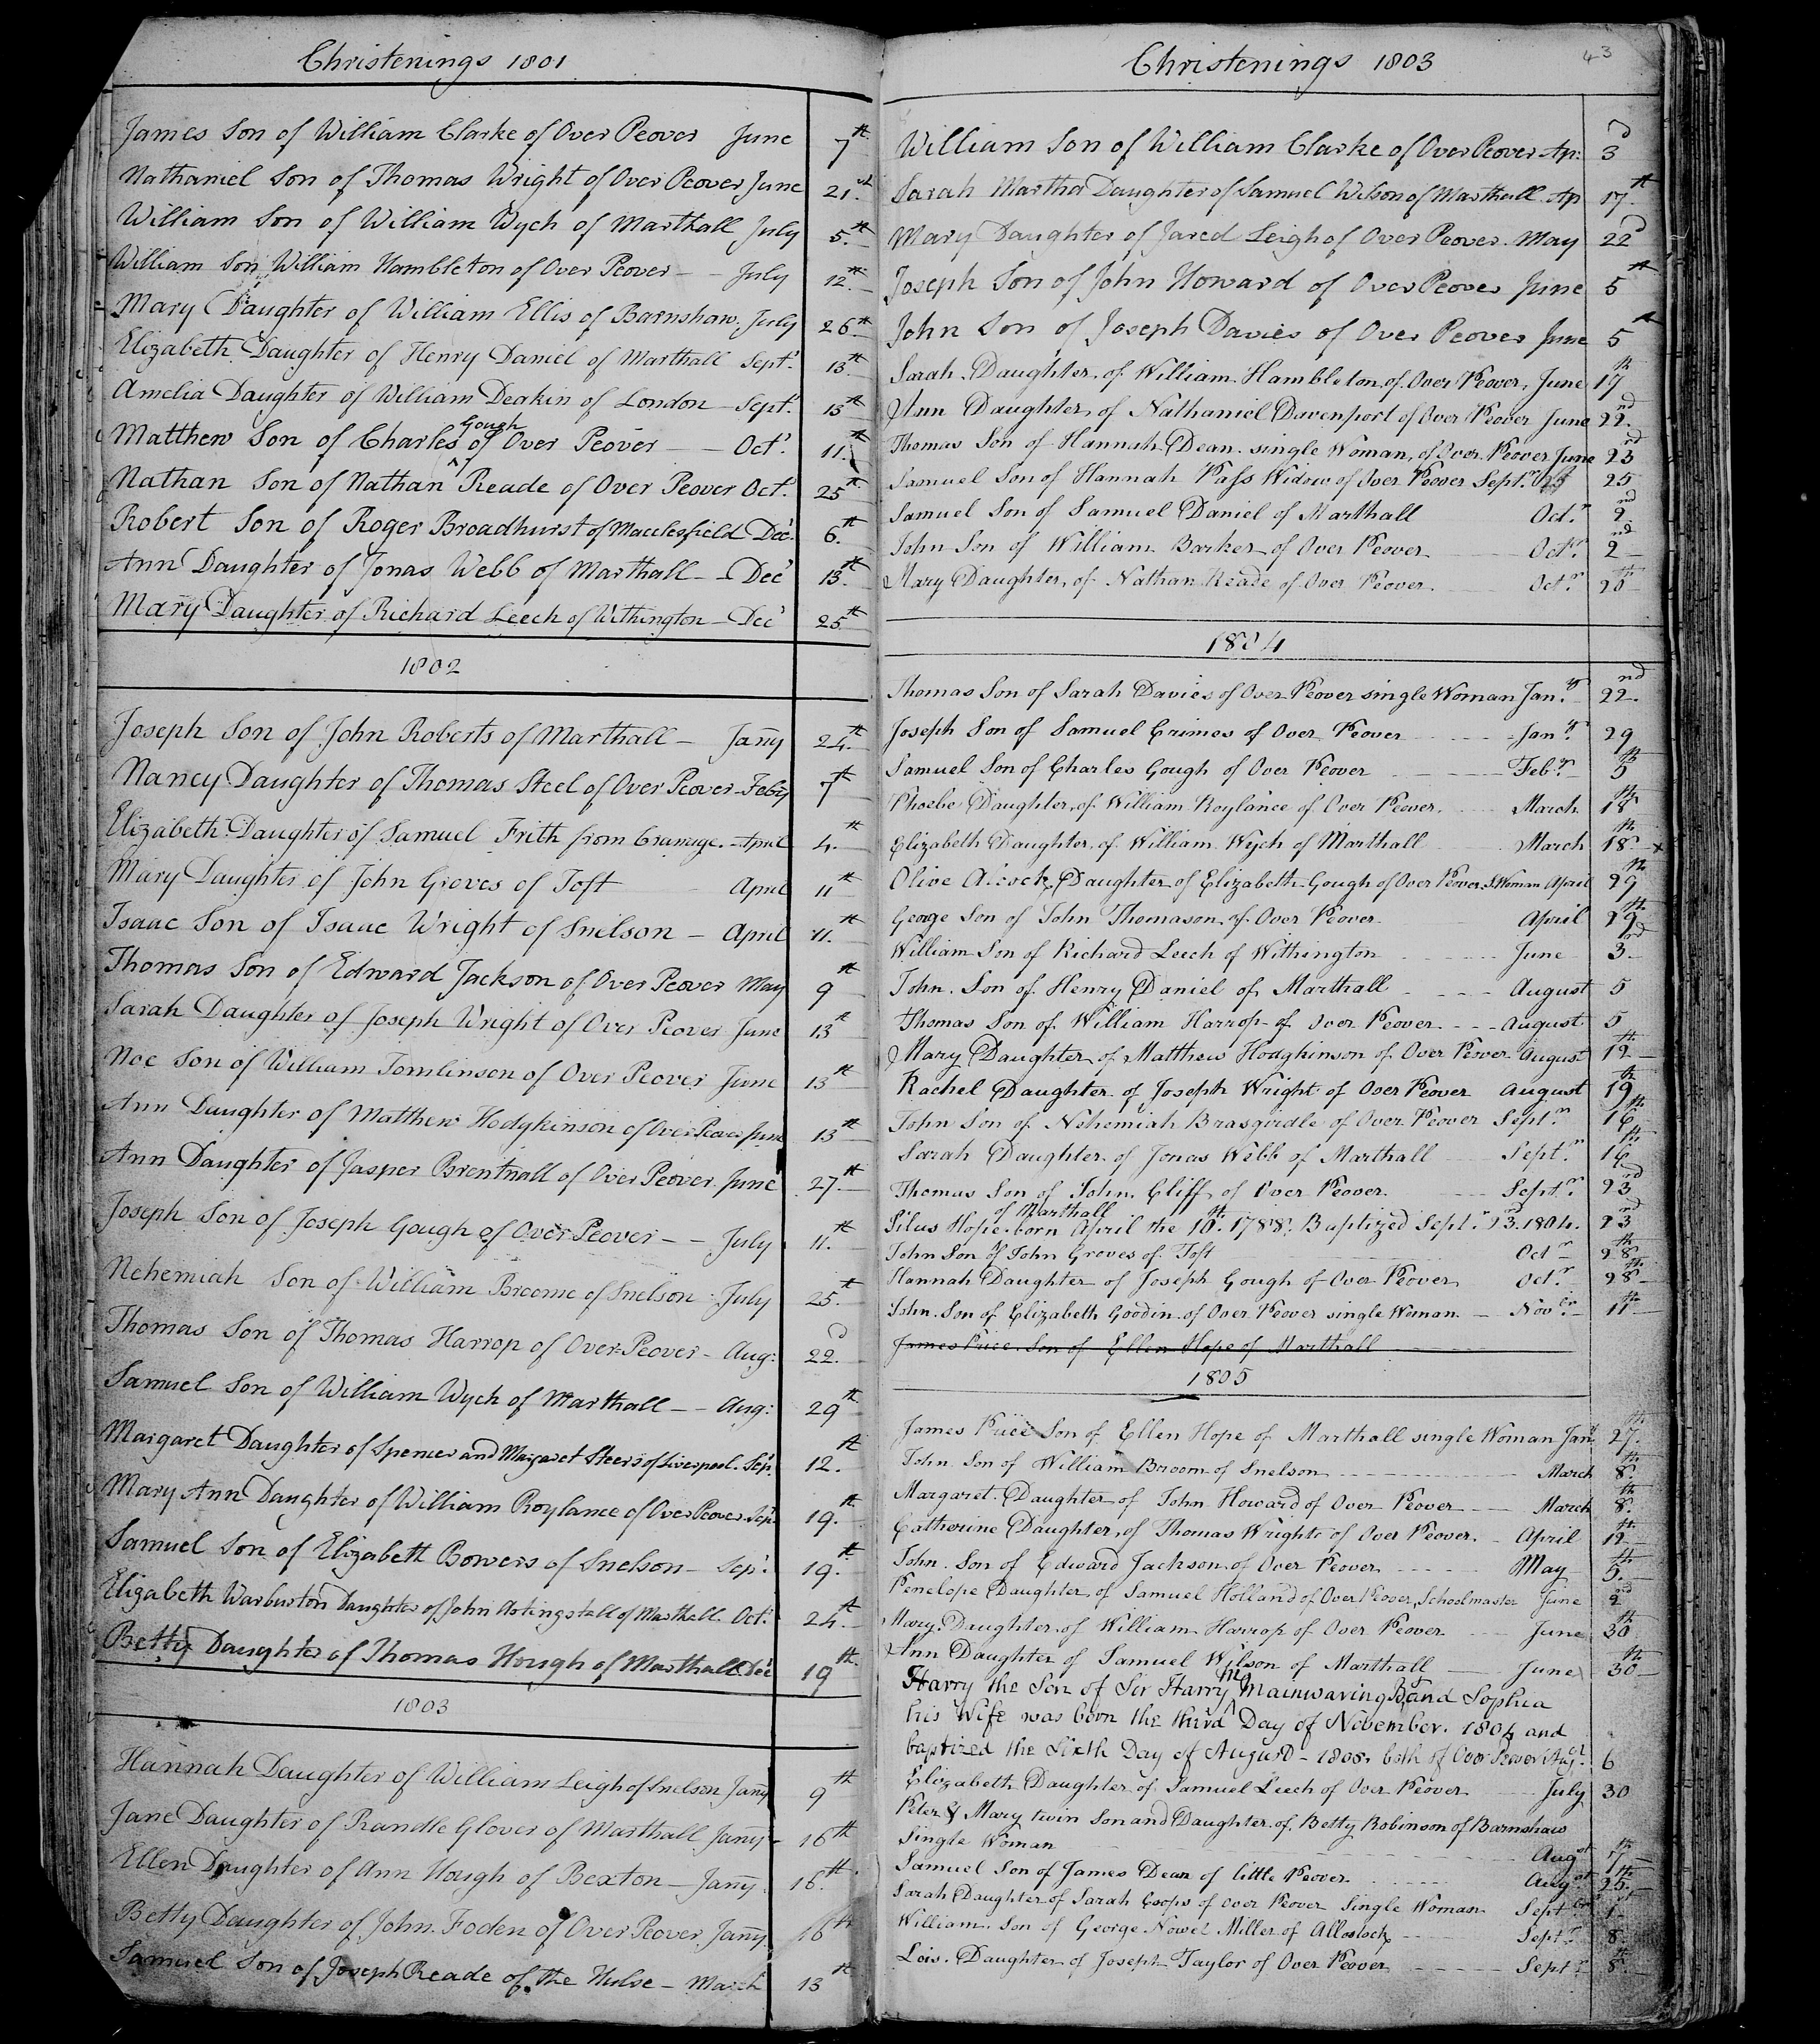 Christenings 1801
James Son of William Clarke of Over Peover June 7th
Nathaniel Son of Thomas Wright of Over Peover June 21st
William Son of William Wych of Marthall July 5th
William Son William Hambleton of Over Peover – – July 12th
Mary Daughter of William Ellis of Barnshaw. July 26th
Elizabeth Daughter of Henry Daniel of Marthall Septr. 13th
Amelia Daughter of William Deakin of London – Septr. 13th
Matthew Son of Charles Gough of Over Peover – – Octr. 11th
Nathan Son of Nathan Reade of Over Peover Octr. 25th
Robert Son of Roger Broadhurst of Macclesfield Decr. 6th
Ann Daughter of Jonas Webb of Marthall – Decr 13th
Mary Daughter of Richard Leech of Withington – Decr 25th
1802
Joseph Son of John Roberts of Marthall – Jany 24th
Nancy Daughter of Thomas Steel of Over Peover – Feby 7th
Elizabeth Daughter of Samuel Frith from Cranage. – April 4th
Mary Daughter of John Groves of Toft April 11th
Isaac Son of Isaac Wright of Snelson – April 11th
Thomas Son of Edward Jackson of Over Peover May 9th
Sarah Daughter of Joseph Wright of Over Peover June 13th
Noe Son of William Tomlinson of Over Peover June 13th
Ann Daughter of Matthew Hodgkinson of Over Peover June 13th
Ann Daughter of Jasper Brentnall of Over Peover June 27th
Joseph Son of Joseph Gough of Over Peover – – July 11th
Nehemiah Son of William Broome of Snelson July 25th
Thomas Son of Thomas Harrop of Over Peover – Aug: 22d
Samuel Son of William Wych of Marthall – – Aug: 29th
Margaret Daughter of Spencer and Margaret Steers of Liverpool. Sepr. 12th
Mary Ann Daughter of William Roylance of Over Peover. Sepr. 19th
Samuel Son of Elizabeth Bowers of Snelson – Sepr. 19th
Elizabeth Warburton Daughter of John Astingstall of Marthall. Octr. 24th
Betty Daughter of Thomas Hough of Marthall Decr 19th
1803
Hannah Daughter of William Leigh of Snelson Jany 9th
Jane Daughter of Randle Glover of Marthall Jany 16th
Ellen Daughter of Ann Hough of Bexton – Jany 16th
Betty Daughter of John Foden of Over Peover Jany 16th
Samuel Son of Joseph Reade of the Hulse – March 13th
Christenings 1803 43
William Son of William Clarke of Over Peover Ap: 3d
Sarah Martha Daughter of Samuel Wilson of Marthall. Ap 17th
Mary Daughter of Jared Leigh of Over Peover. May 22d
Joseph Son of John Howard of Over Peover June 5th
John Son of Joseph Davies of Over Peover June 5th
Sarah Daughter of William Hambleton of Over Peover, June 17th
Ann Daughter of Nathaniel Davenport of Over Peover June 22nd
Thomas Son of Hannah Dean single Woman, of Over Peover June 23rd
Samuel Son of Hannah Pass Widow of Over Peover Septr. 25
Samuel Son of Samuel Daniel of Marthall Octr. 2nd
John Son of William Barker of Over Peover Octr. 2nd
Mary Daughter of Nathan Reade of Over Peover Octr. 20th
1804
Thomas Son of Sarah Davies of Over Peover single Woman Jany. 22nd
Joseph Son of Samuel Grimes of Over Peover Jany. 29
Samuel Son of Charles Gough of Over Peover Feby. 5th
Phoebe Daughter of William Roylance of Over Peover March 18th
Elizabeth Daughter of William Wych of Marthall March 18th x
Olive Alcock Daughter of Elizabeth Gough of Over Peover S. Woman April 29th
George Son of John Thomason of Over Peover April 29th
William Son of Richard Leech of Withington June 3rd
John Son of Henry Daniel of Marthall August 5
Thomas Son of William Harrop of Over Peover August 5
Mary Daughter of Matthew Hodgkinson of Over Peover August 12th
Rachel Daughter of Joseph Wright of Over Peover August 19th
John Son of Nehemiah Brasgirdle of Over Peover Septr. 16th
Sarah Daughter of Jonas Webb of Marthall Septr. 16th
Thomas Son of John Cliff of Over Peover Septr. 23rd
Silus Hope of Marthall born April the 10th. 1788. Baptized Septr. 23rd. 1804. 23rd
John Son of John Groves of Toft Octr 28th
Hannah Daughter of Joseph Gough of Over Peover Octr. 28th
John Son of Elizabeth Goodin of Over Peover single Woman Novbr. 11th
James Price Son of Ellen Hope of Marthall
1805
James Price Son of Ellen Hope of Marthall single Woman Jany 27th
John Son of William Broom of Snelson March 8th
Margaret Daughter of John Howard of Over Peover March 8th
Catherine Daughter of Thomas Wright of Over Peover April 12th
John Son of Edward Jackson of Over Peover May 5th
Penelope Daughter of Samuel Holland of Over Peover, Schoolmaster June 2nd
Mary Daughter of William Harrop of Over Peover June 30th
Ann Daughter of Samuel Wilson of Marthall June 30th
Harry the Son of Sir Harry Mainwaring Bt and Sophia
his Wife was born the third Day of November. 1804 and
baptized the Sixth Day of August – 1805. both of Over Peover Augst. 6
Elizabeth Daughter of Samuel Leech of Over Peover July 30
Peter & Mary twin Son and Daughter of Betty Robinson of Barnshaw
Single Woman Augst 17th
Samuel Son of James Dean of little Peover Augst. 25th
Sarah Daughter of Sarah of Over Peover Single Woman Septbr 1st
William Son of George Nowel Miller of Allostock Septr. 8
Lois Daughter of Joseph Taylor of Over Peover Septr. 8th